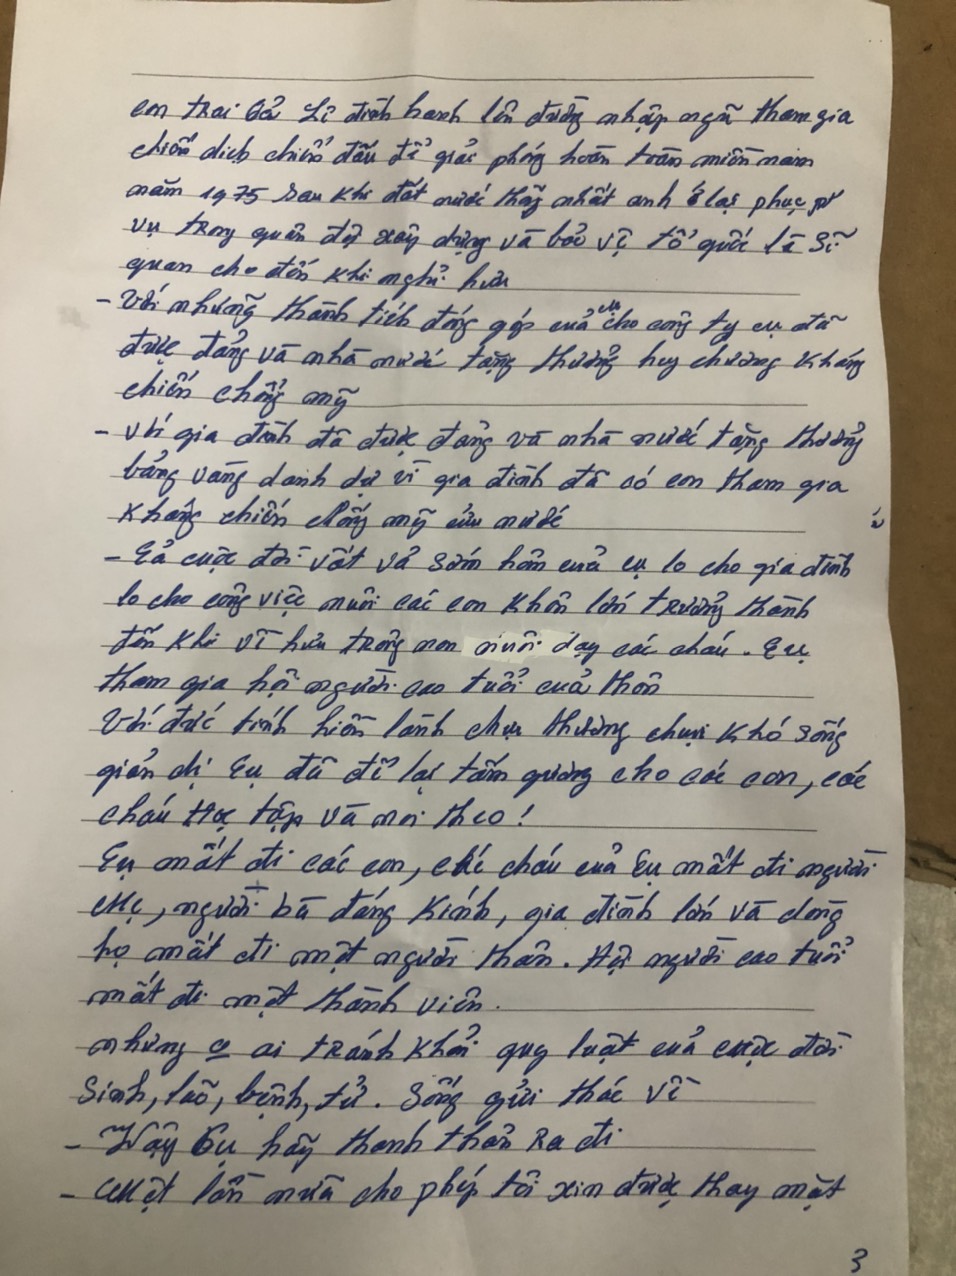 em trai cả Lê đình hanh lên đường nhập ngũ tham gia
chiến dịch chiến đấu để giải phóng hoàn toàn miền nam
năm 1975 sau khi đất nước thống nhất anh ở lại phục
vụ trong quân đội xây dựng và bảo vệ tổ quốc là sĩ
quan cho đến khi nghỉ hưu
- Với những thành tích đóng góp của cụ cho công ty cụ đã
được đảng và nhà nước tặng thưởng huy chương kháng
chiến chống mỹ
- với gia đình đã được đảng và nhà nước tặng thưởng
bảng vàng danh dự vì gia đình đã có con tham gia
kháng chiến chống mỹ cứu nước
- Cả cuộc đời vất vả sớm hôm của cụ lo cho gia đình
lo cho công việc nuôi các con khôn lớn trưởng thành
đến khi về hưu trông non nuôi dạy các cháu. Cụ
tham gia hội người cao tuổi của thôn
Với đức tính hiền lành chịu thương chịu khó sống
giản dị Cụ đã để lại tấm gương cho các con, các
cháu Học tập và noi theo!
Cụ mất đi các con, các cháu của Cụ mất đi người
Mẹ, người bà đáng kính, gia đình lớn và dòng
họ mất đi một người thân. Hội người cao tuổi
mất đi một thành viên.
nhưng ai tránh khỏi quy luật của cuộc đời
Sinh, lão, bệnh, tử. Sống gửi thác về
- Vậy Cụ hãy thanh thản Ra đi
- Một lần nữa cho phép tôi xin được thay mặt
3